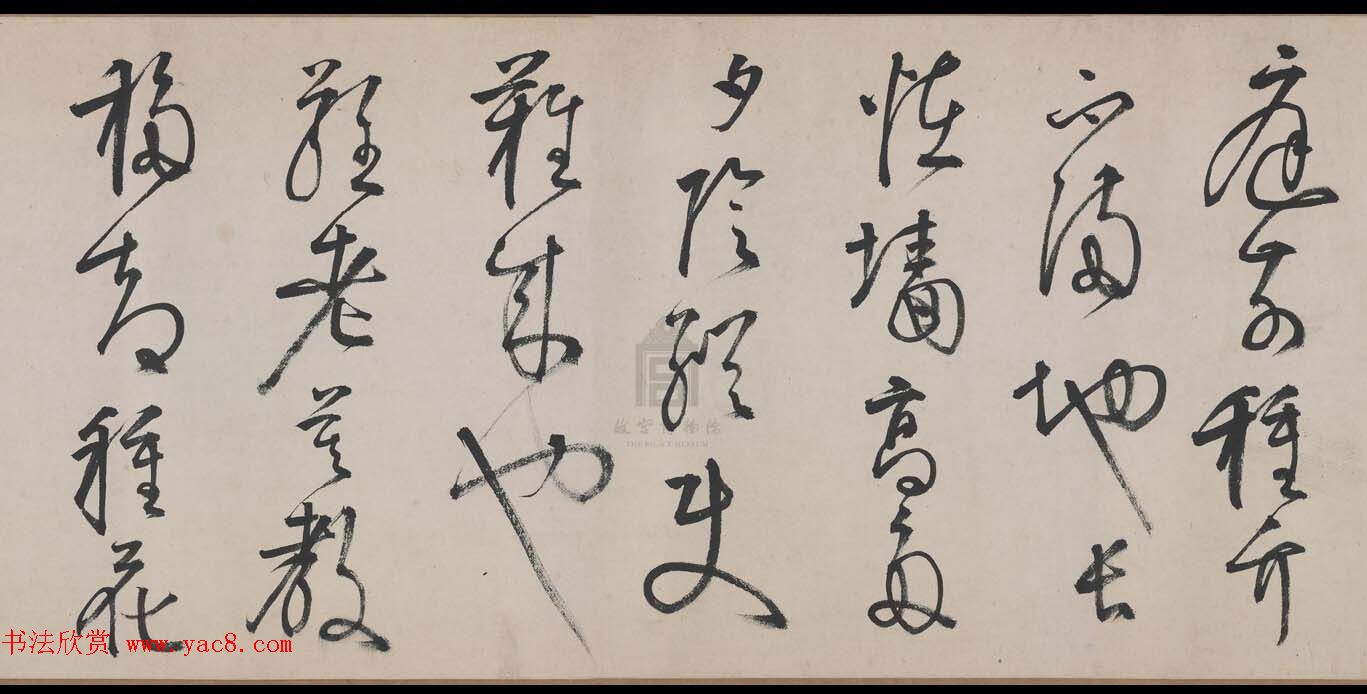 庭前種竹
不滿地長
怪墻高多
夕陰縱使
難成也
難老莫教
移却種花
故宫博物院
THE PALACE MUSEUM
书法欣赏 www.yac8.com